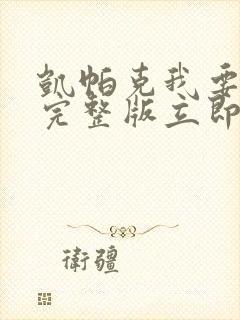 凱帕克我要
完整版立即
衛疆